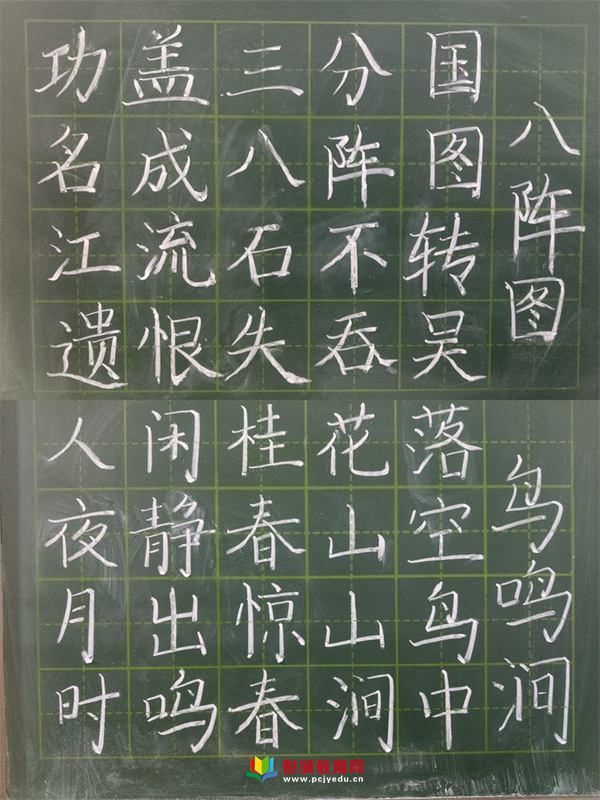 八阵图
功盖三分国
名成八阵图
江流石不转
遗恨失吞吴
鸟鸣涧
人闲桂花落
夜静春山空
月出惊山鸟
时鸣春涧中
www.pcjyedu.cn